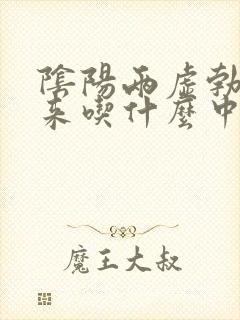 陰陽兩虛勃
來喫什麼中
魔王大叔